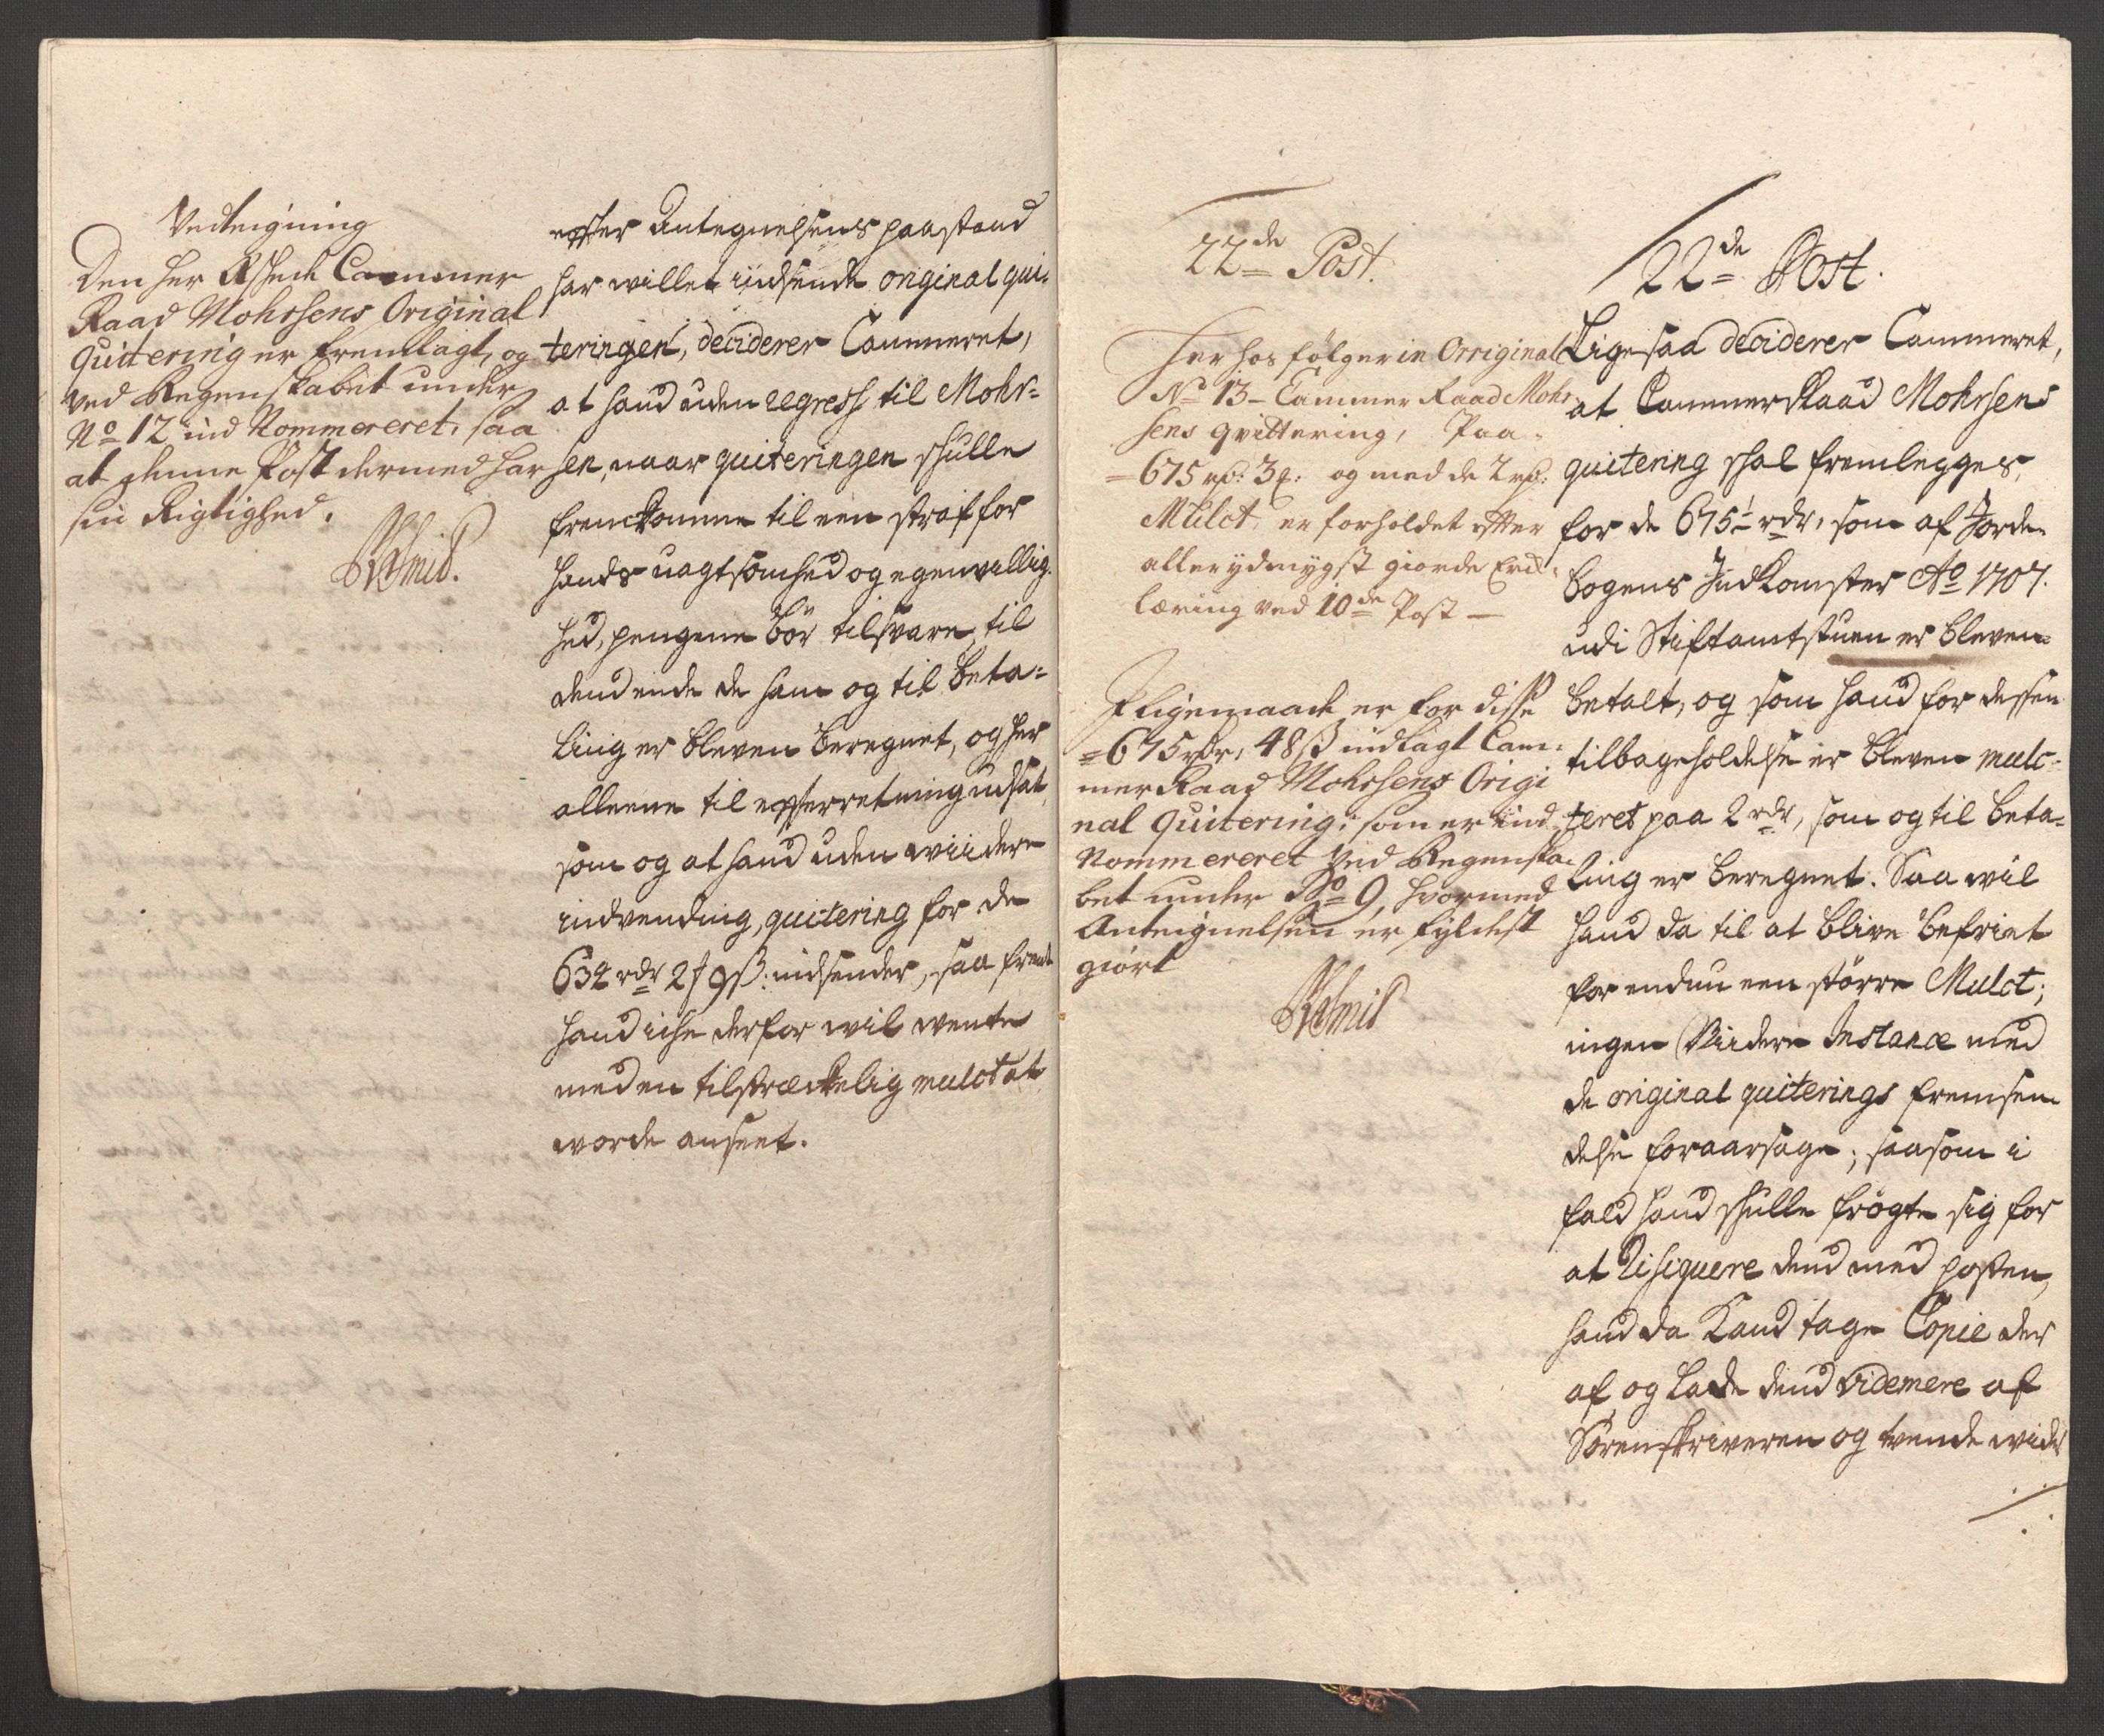 Vedteigning
Den her Cammer
Raad Mohrsens Original
Quitering er fremlagt, og
ved Regenskabet under
No 12 ind Nommereret, saa
at denne Post dermed har
sin Rigtighed.
effter Antegnelsens paastand
har willet indsende original qui-
teringen, deciderer Cammeret,
at hand uden regress til Mohr-
sen, naar quiteringen skulle
fremkomme til een straf for
hands uagtsomhed og egenvillig-
hed, pengene bör tilsvare, til
dend ende de ham og til beta-
ling er bleven beregnet, og her
alleene til effterretning udsat,
som og at hand uden wiidere
indvending, quitering for de
634 rdr 2 f 9 ß: indsender, saa frembt
hand iche derfor wil wente
med en tilstræckelig mulct at
worde anseet.
22de Post.
Her hos fölger in Orriginal
No 13 - Cammer Raad Mohr-
sens qvittering, Paa
675 rd: 3 f: og med de 2 rd:
Mulct, er forholdet effter
allerydmygst giorde Erck-
læring ved 10de Post —
Ligemaade er for disse
675 rdr, 48 ß indlagt Cam-
mer Raad Mohrsens Origi
nal Quitering, som er ind
Nommereret ved Regenska-
bet under No 9, hvormed
Anteignelsen er fyldest
giort
22de Post.
Ligesaa deciderer Cammeret,
at Cammer Raad Mohrsens
quitering skal fremlegges,
for de 675½ rdr, som af Jorde-
bogens Indkomster Ao 1707.
udi Stiftamtstuen er bleven
betalt, og som hand for dessen
tilbageholdelse er bleven mulc-
teret paa 2 rdr, som og til beta-
ling er beregnet. Saa wil
hand da til at blive befriet
for endnu een större Mulct;
ingen Wiidere Instance med
de original quiterings fremsen-
delse foraarsage; saasom i
fald hand skulle frögte sig for
at Risiquere dend med posten,
hand da Kand tage Copie der
af og Lade dend videmere af
Sorenskriveren og tvende wider